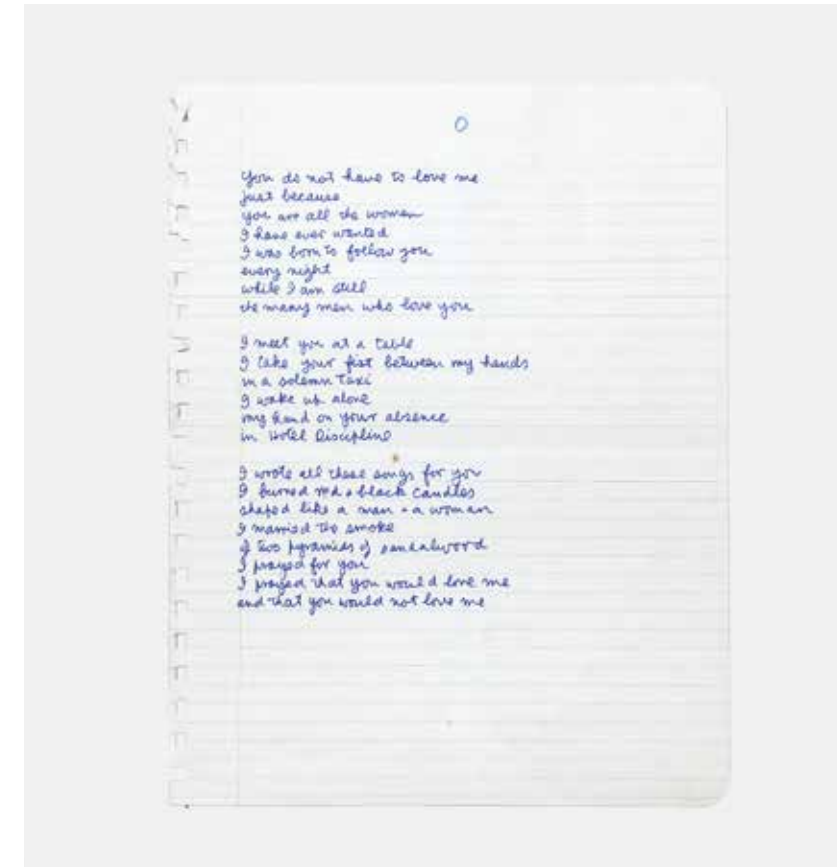 0
You do not have to love me
just because
you are all the women
I have ever wanted
I was born to follow you
every night
while I am still
the many men who love you
I meet you at a table
I take your fist between my hands
in a solemn taxi
I wake up alone
my hand on your absence
in Hotel Discipline
I wrote all these songs for you
I burned red + black candles
shaped like a man + a woman
I married the smoke
of two pyramids of sandalwood
I prayed for you
I prayed that you would love me
and that you would not love me